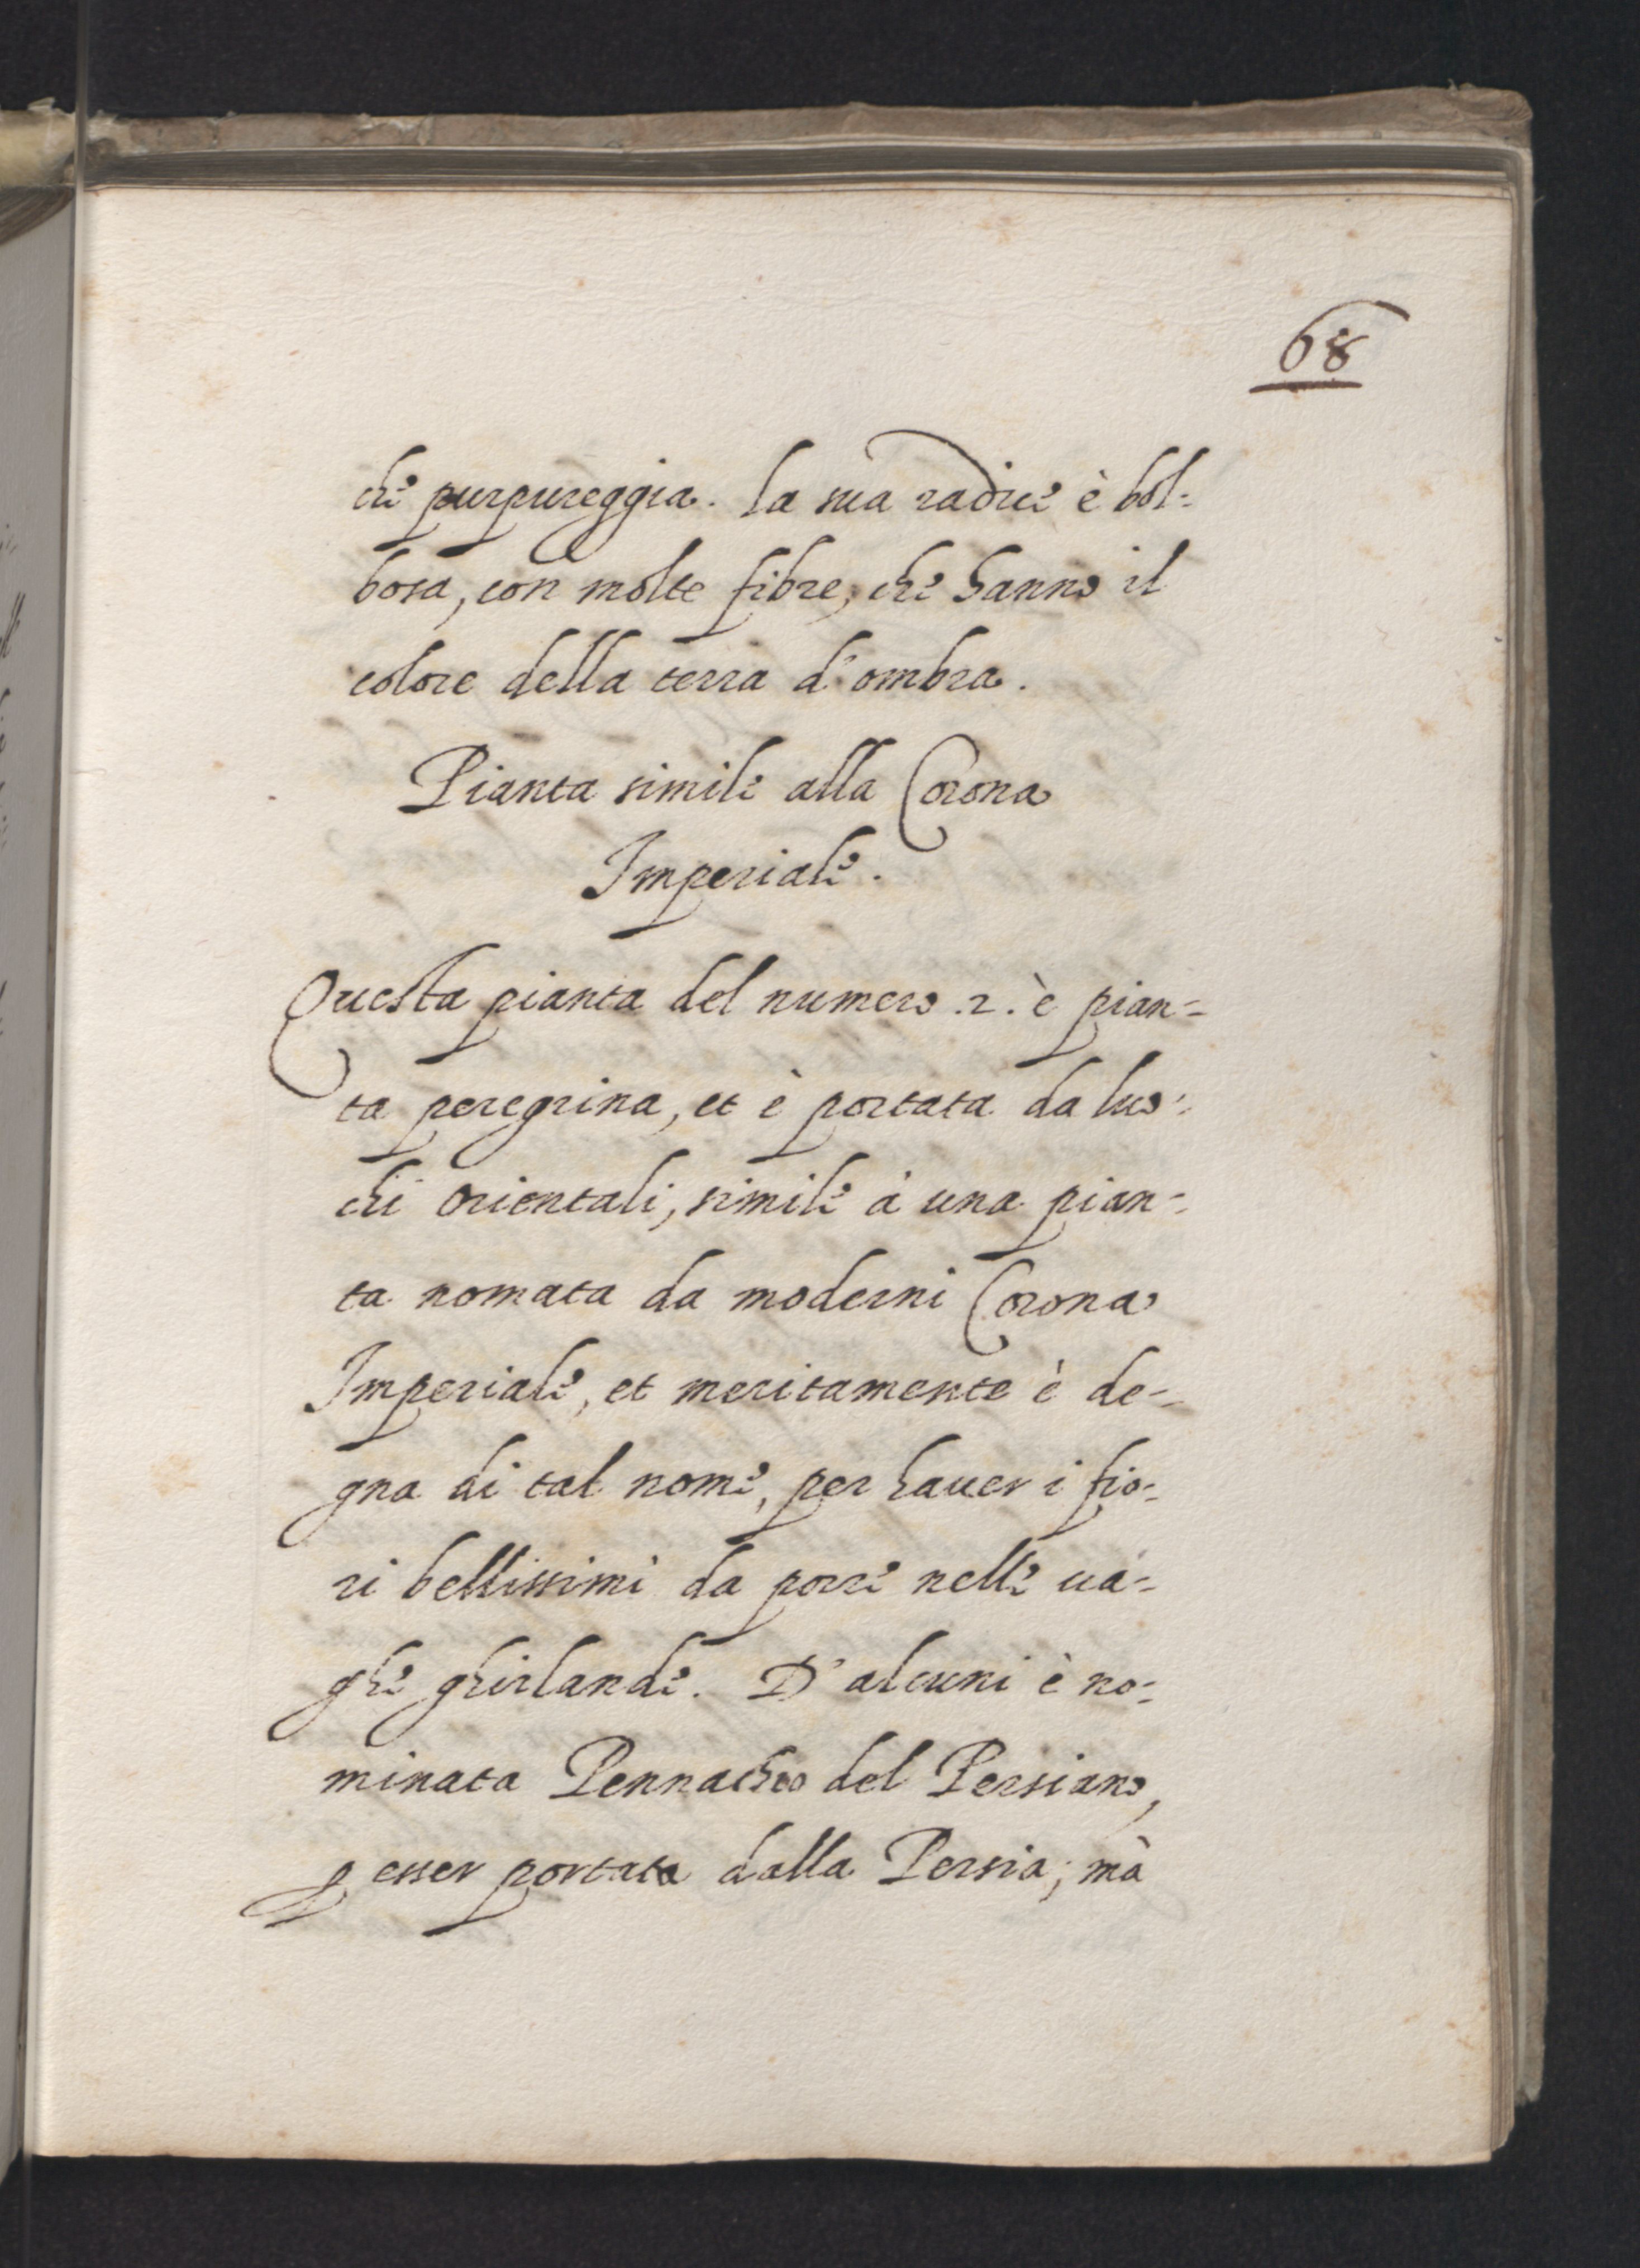 68
che purpureggia. la sua radice è bol=
bosa, con molte fibre, che hanno il
colore della terra d'ombra.
Pianta simile alla Corona
Imperiale.
Questa pianta del numero .2. è pian=
ta peregrina, et è portata da luo=
chi orientali, simile à una pian=
ta nomata da moderni Corona
Imperiale, et meritamente è de=
gna di tal nome, per hauer i fio=
ri bellissimi da porre nelle ua=
ghe ghirlande. D'alcuni è no=
minata Pennacho del Persiano,
ꝑ esser portata dalla Persia; mà